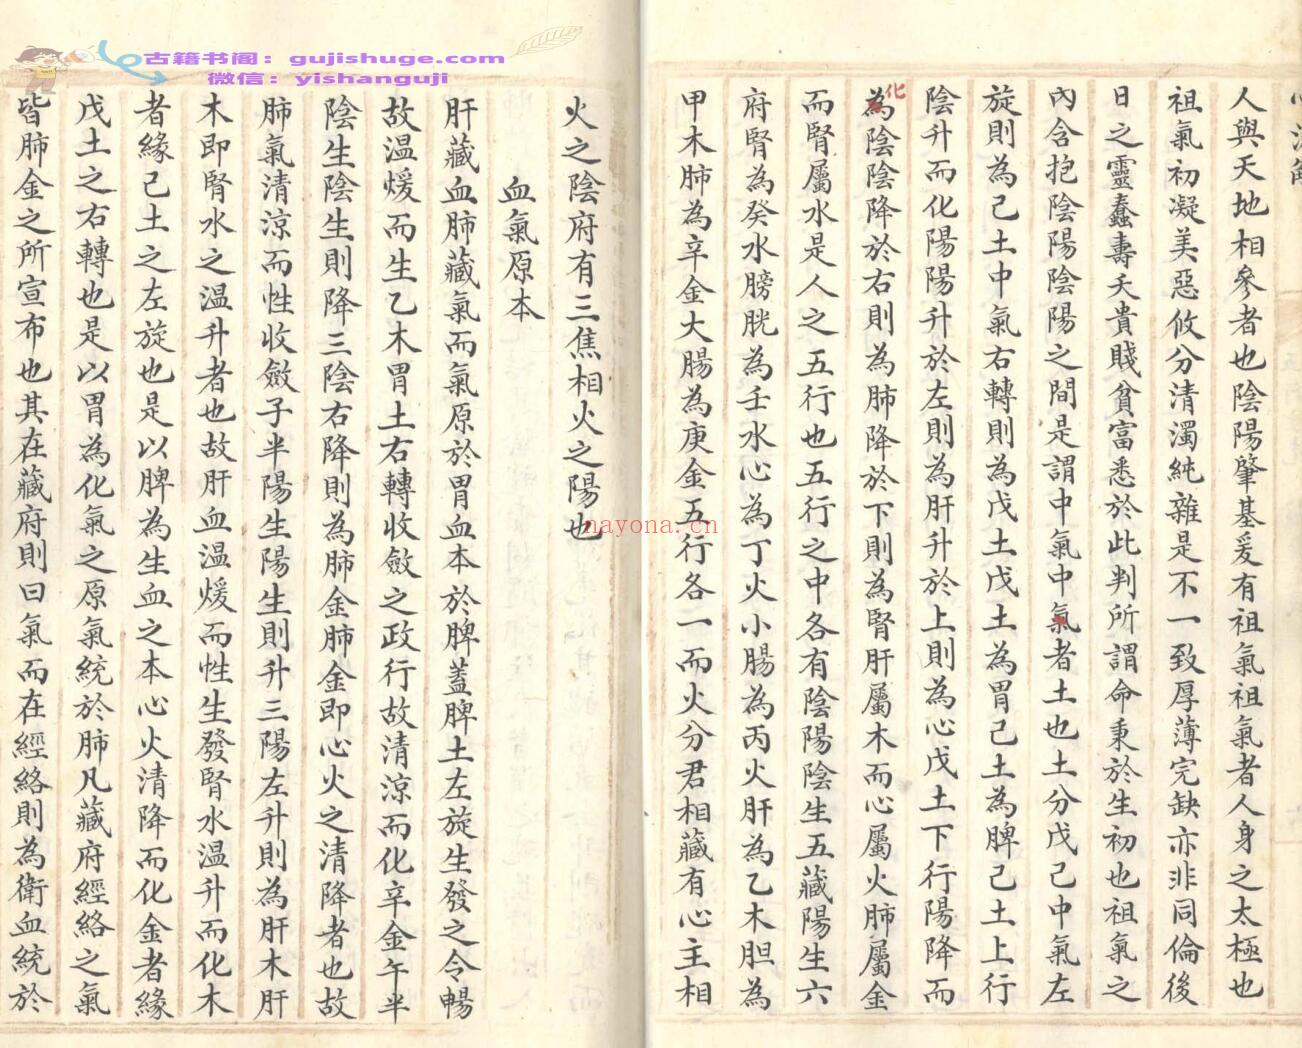 古籍书阁：gujishuge.com
微信：yishanguji
人與天地相參者也陰陽肇基爰有祖氣祖氣者人身之太極也
祖氣初凝美惡攸分清濁純雜是不一致厚薄完缺亦非同倫後
日之靈蠢壽夭貴賤貧富悉於此判所謂命秉於生初也祖氣之
內含抱陰陽陰陽之間是謂中氣中氣者土也土分戊己中氣左
旋則為己土中氣右轉則為戊土戊土為胃己土為脾己土上行
陰升而化陽陽升於左則為肝升於上則為心戊土下行陽降而
化
為陰陰降於右則為肺降於下則為腎肝屬木而心屬火肺屬金
而腎屬水是人之五行也五行之中各有陰陽陰生五藏陽生六
府腎為癸水膀胱為壬水心為丁火小腸為丙火肝為乙木胆為
甲木肺為辛金大腸為庚金五行各一而火分君相藏有心主相
火之陰府有三焦相火之陽也
血氣原本
肝藏血肺藏氣而氣原於胃血本於脾蓋脾土左旋生發之令暢
故温煖而生乙木胃土右轉收斂之政行故清涼而化辛金午半
陰生陰生則降三陰右降則為肺金肺金即心火之清降者也故
肺氣清涼而性收斂子半陽生陽生則升三陽左升則為肝木肝
木即腎水之温升者也故肝血温煖而性生發腎水温升而化木
者緣己土之左旋也是以脾為生血之本心火清降而化金者緣
戊土之右轉也是以胃為化氣之原氣統於肺凡藏府經絡之氣
皆肺金之所宣布也其在藏府則曰氣而在經絡則為衛血統於
nayona.cn